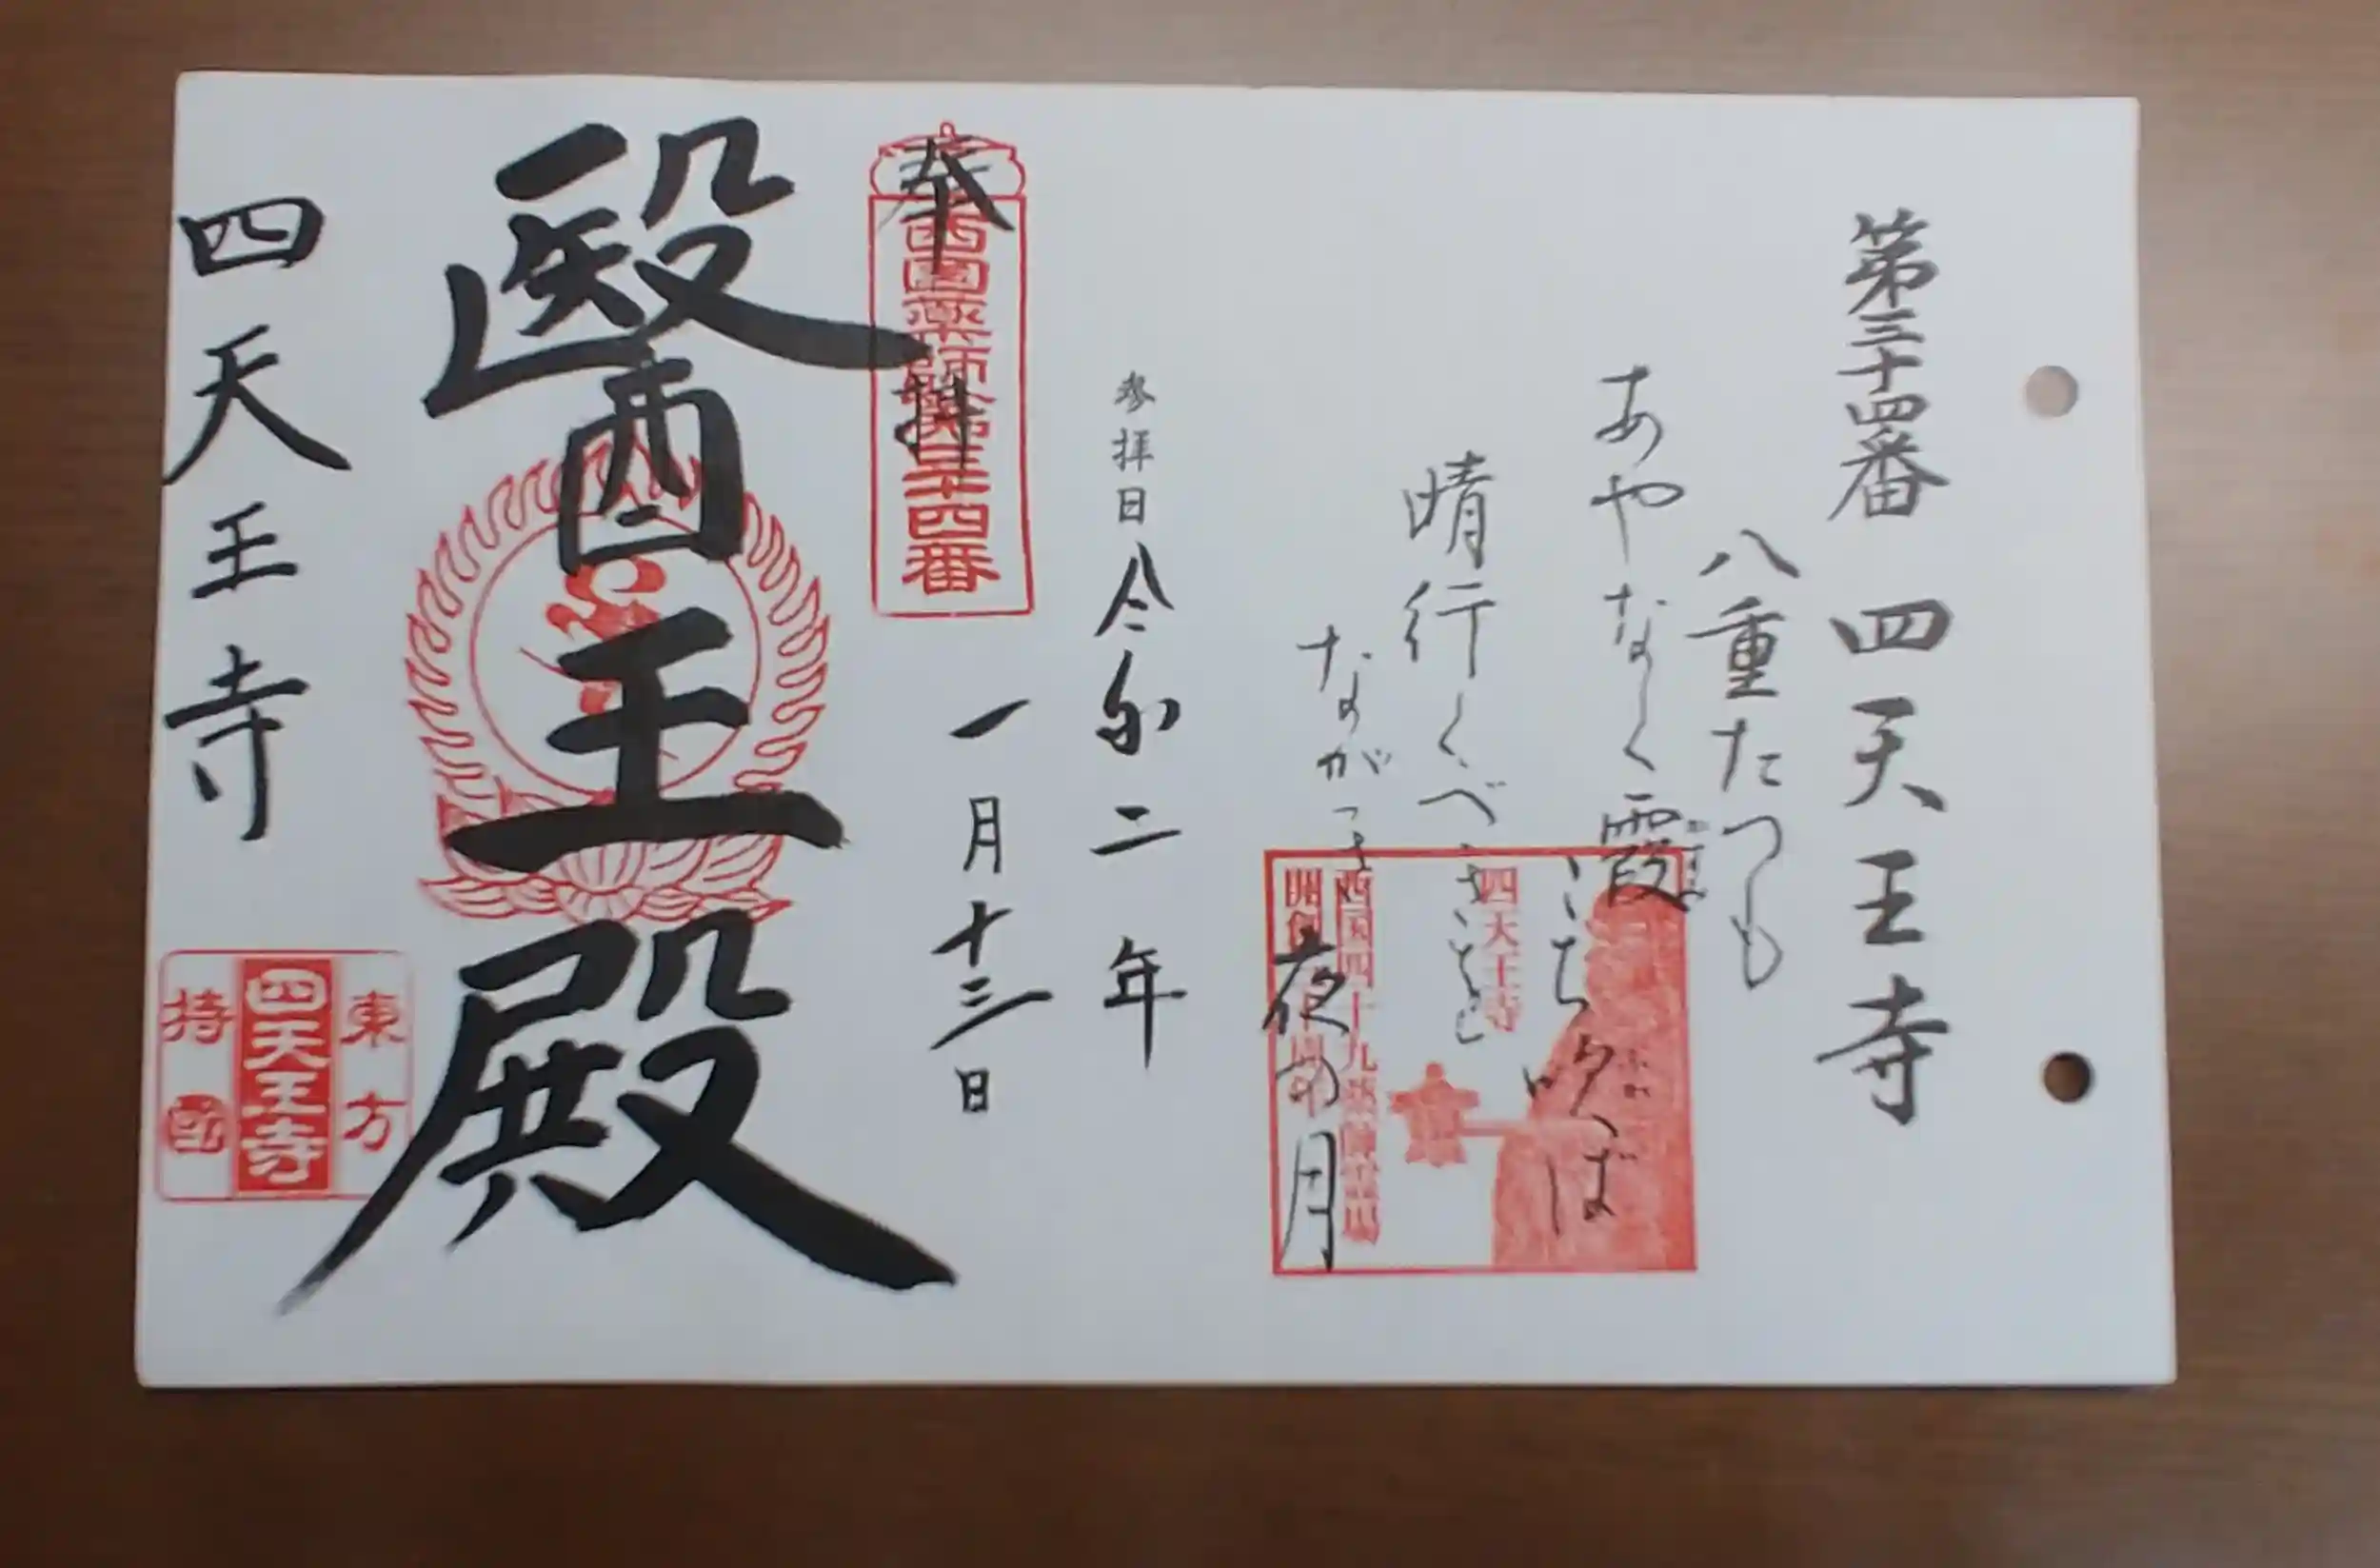 第三十四番 四天王寺
八重たつも
あやなく霞
こち吹かば
晴行くべき
ながき
夜の月
四天王寺
西国四十九薬師霊場
参拝日 令和二年
一月十三日
奉拝
西國薬師第三十四番
醫王殿
四天王寺
東方
四天王寺
持国